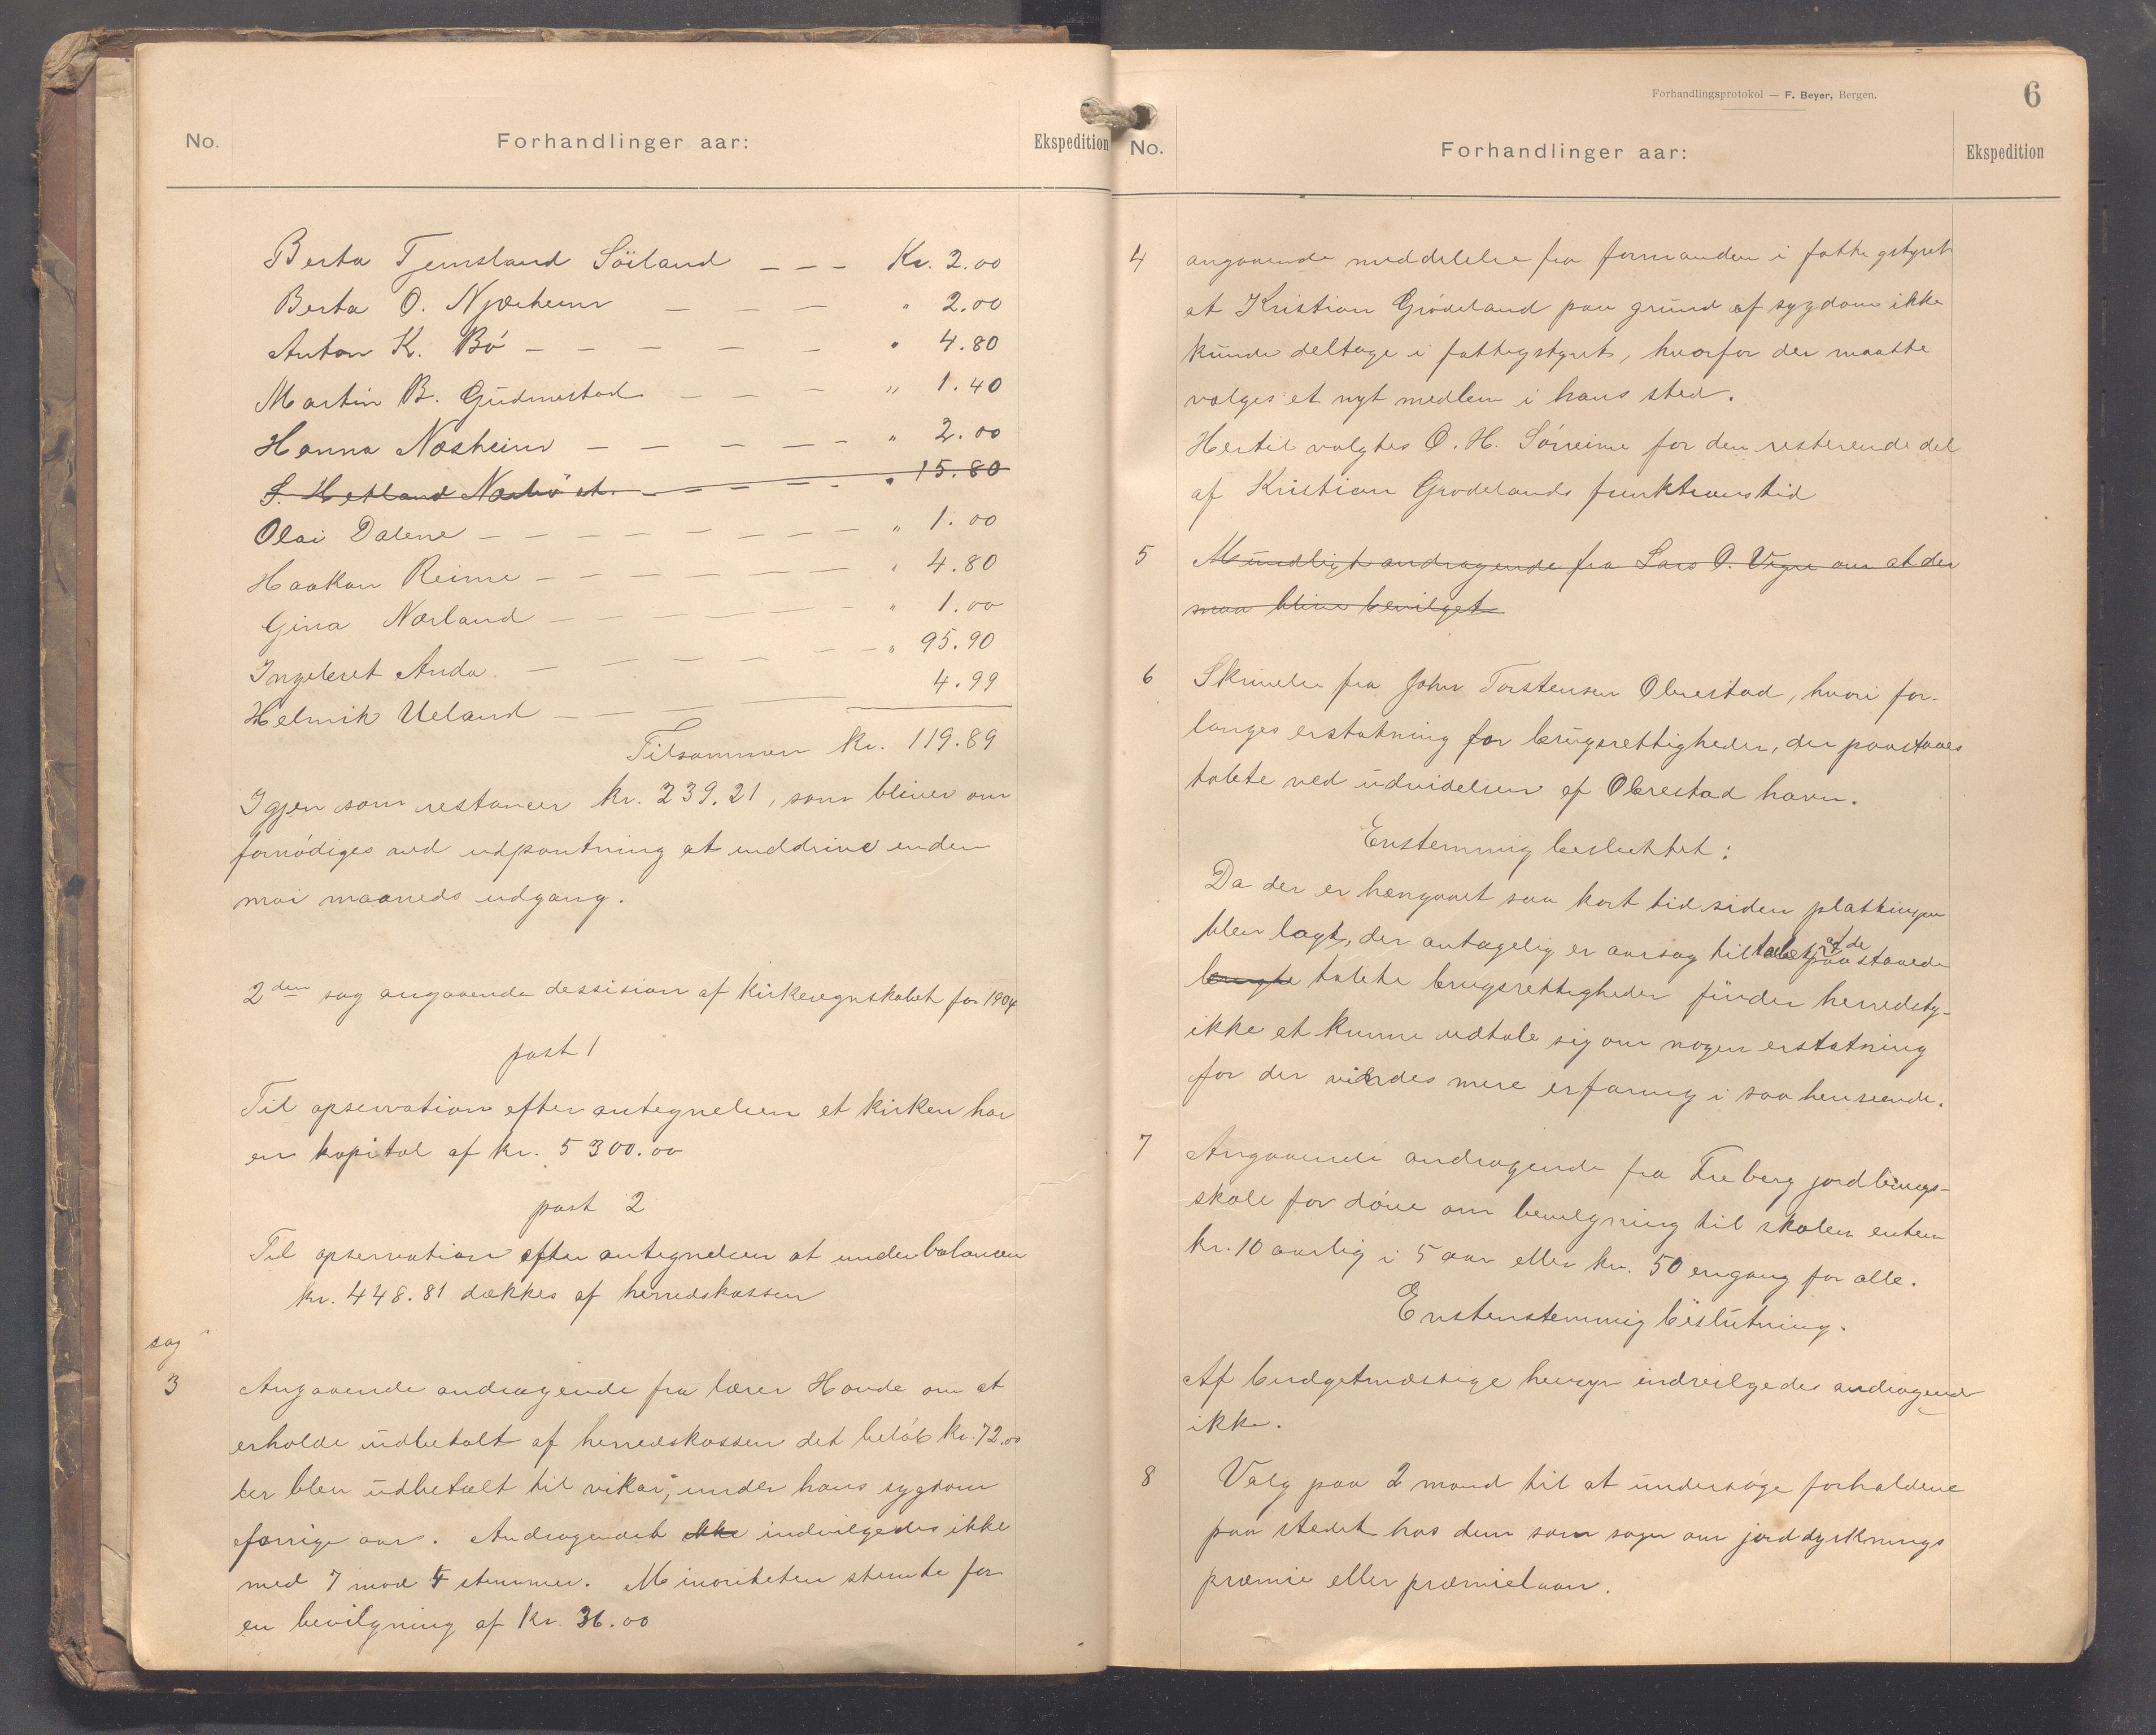 No. Forhandlinger aar: Ekspedition
Berta Tjemsland Söiland - - - Kr. 2.00
Berta O. Njærheim - - - " 2.00
Anton K. Bö - - - - - - " 4.80
Martin B. Gudmestad - - - " 1.40
Hanna Næsheim - - - - - " 2.00
S. Hetland Nærbö st. - - - - - " 15.80
Olai Dalene - - - - - - - - " 1.00
Haakon Reime - - - - - - - " 4.80
Gina Nærland - - - - - - - " 1.00
Ingeleret Anda - - - - - - - - " 95.90
Helmik Ueland - - - - - 4.99
Tilsammen kr. 119.89
Igjen som restancer kr. 239.21, som bliver om
fornödiges ved udpantning at inddrive inden
mai maaneds udgang.
2den sag angaaende dessision af kirkeregnskabet for 1904
post 1
Til opservation efter antegnelsen at kirken har
en kapital af kr. 5300.00
post 2
Til opservation efter antegnelsen at underbalancen
kr. 448.81 dækkes af herredskassen
sag
3 Angaaende andragende fra lærer Hovde om at
erholde udbetalt af herredskassen det belöb kr. 72.00
der blev udbetalt til vikar, under hans sygdom
forrige aar. Andragendet ikke indvilgedes ikke
med 7 mod 4 stemmer. Minoriteten stemte for
en bevilgning af kr. 36.00
Forhandlingsprotokol — F. Beyer, Bergen.
6
No. Forhandlinger aar: Ekspedition
4 angaaende meddelelse fra formanden i fattigstyret
at Kristian Grödeland paa grund af sygdom ikke
kunde deltage i fattigstyret, hvorfor der maatte
vælges et nyt medlem i hans sted.
Hertil valgtes O. H. Sörreime for den resterende del
af Kristian Grödelands funktionstid
5 Mundligt andragende fra Lars O. Vigre om at der
maa blive bevilget
6 Skrivelse fra John Torstensen Obrestad, hvori for-
langes erstatning for brugsrettigheder, der paastaaes
tabte ved udvidelsen af Obrestad havn.
Enstemmig besluttet:
Da der er hengaaet saa kort tid siden plattingen
blev lagt, der antagelig er aarsag til tabet af de paastaaede
brugte tabte brugsrettigheder finder herredsty-
ikke at kunne udtale sig om nogen erstatning
før der vindes mere erfaring i saa henseende.
7 Angaaende andragende fra Treberg jordbrugs-
skole for döve om bevilgning til skolen enten
kr. 10 aarlig i 5 aar eller kr. 50 engang for alle.
Enstenstemmig beslutning.
Af budgetmæssige hensyn indvilgedes andragend
ikke.
8 Valg paa 2 mand til at undersöge forholdene
paa stedet hos dem som söger om jorddyrknings
præmie eller præmielaan.